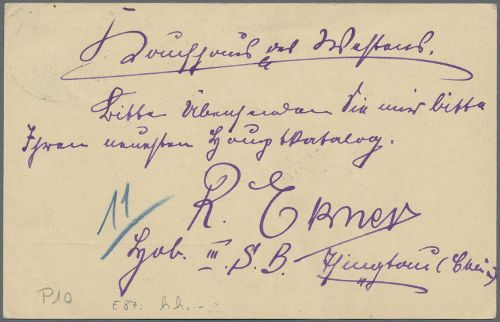 Kaufhaus des Westens.
Bitte Übersenden Sie mir bitte
Ihren neuesten Hauptkatalog.
11
R. Ebner
III. S. B. Tsingtau (China)
P10
E87: h.h. -